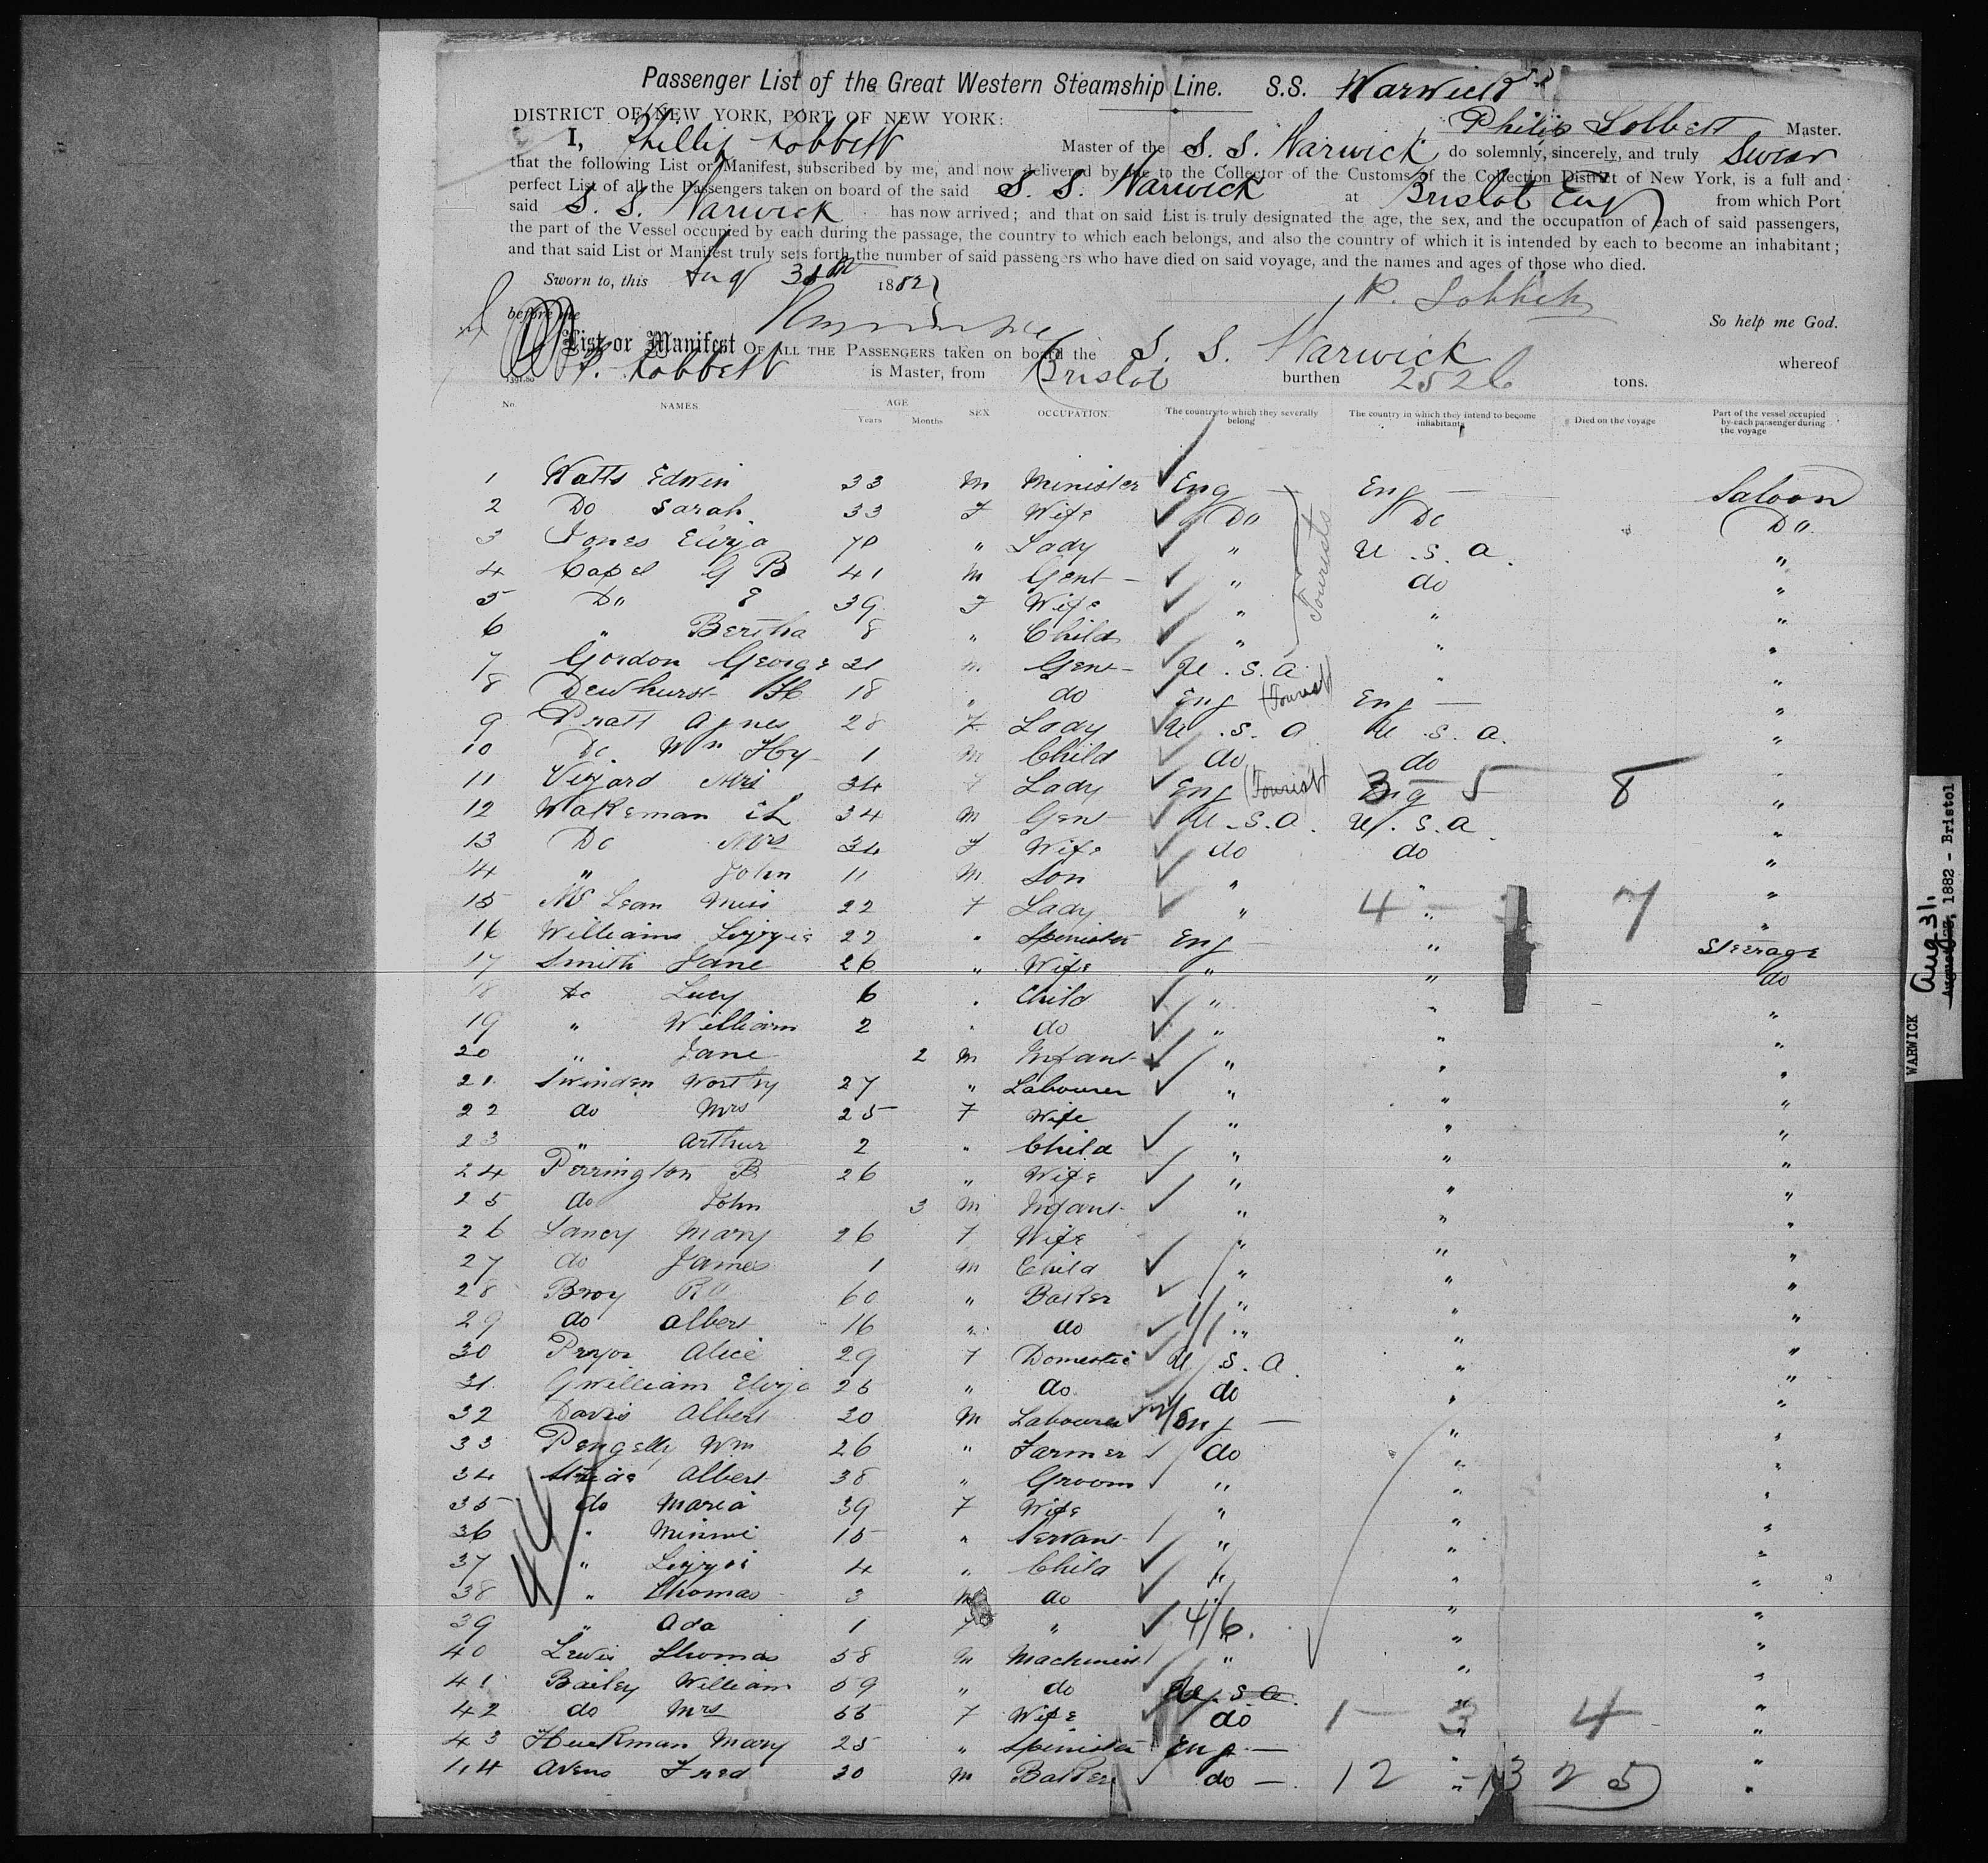 Passenger List of the Great Western Steamship Line. S.S. Warwick
DISTRICT OF NEW YORK, PORT OF NEW YORK: Philip Lobbett Master.
I, Phillip Lobbett Master of the S. S. Warwick do solemnly, sincerely, and truly Swear
that the following List or Manifest, subscribed by me, and now delivered by me to the Collector of the Customs of the Collection District of New York, is a full and
perfect List of all the Passengers taken on board of the said S. S. Warwick at Bristol Eng from which Port
said S. S. Warwick has now arrived; and that on said List is truly designated the age, the sex, and the occupation of each of said passengers,
the part of the Vessel occupied by each during the passage, the country to which each belongs, and also the country of which it is intended by each to become an inhabitant;
and that said List or Manifest truly sets forth the number of said passengers who have died on said voyage, and the names and ages of those who died.
Sworn to, this Aug 31st 1882
P. Lobbett
before me So help me God.
List or Manifest OF ALL THE PASSENGERS taken on board the S. S. Warwick whereof
P. Lobbett is Master, from Bristol burthen 2526 tons.
No. NAMES AGE Years Months SEX OCCUPATION The country to which they severally belong The country in which they intend to become inhabitants Died on the voyage Part of the vessel occupied by each passenger during the voyage
1 Watts Edwin 33 M Minister Eng — Eng — Saloon
2 Do Sarah 33 F Wife Do Do Do
3 Jones Eliza 70 " Lady " U.S.A. "
4 Capel G B 41 M Gent — " do "
5 Do E 39 F Wife " " "
6 " Bertha 8 " Child " " "
Tourists
7 Gordon George 21 M Gent — U.S.A. " "
8 Dewhurst H 18 " do Eng (Tourist Eng — "
9 Pratt Agnes 28 F Lady U.S.A U.S.A. "
10 Do Wm Hy 1 M Child do do "
11 Vizard Mrs 34 F Lady Eng (Tourist Eng "
3 - 5 8
12 Wakeman 34 M Gent U.S.A. U.S.A. "
13 Do Mrs 34 F Wife do do "
14 " John 11 M Son " " "
15 McLean Miss 22 F Lady " " "
4 - 7
16 Williams Lizzie 22 " Spinister Eng " Steerage
17 Smith Jane 26 " Wife " " do
18 do Lucy 6 " Child " " "
19 " William 2 " do " " "
20 " Jane 2 M Infant " " "
21 Swinden Worthy 27 " Labourer " " "
22 do Mrs 25 F Wife " " "
23 " Arthur 2 " Child " " "
24 Perrington B 26 " Wife " " "
25 do John 3 M Infant " " "
26 Lancy Mary 26 F Wife " " "
27 do James 1 M Child " " "
28 Broy 60 " Baker " " "
29 do Albert 16 " do " " "
30 Pryor Alice 29 F Domestic U.S.A. " "
31 Gwilliam Eliza 25 " do do " "
32 Davis Albert 20 M Labourer Eng — " "
33 Pengelly Wm 26 " Farmer do " "
34 Albert 38 " Groom " " "
35 do Maria 39 F Wife " " "
36 " Minnie 15 " Servant " " "
37 " Lizzie 4 " Child " " "
38 " Thomas 3 M do " " "
39 " Ada 1 F " " " "
4/6.
40 Lewis Thomas 58 M Machinist " " "
41 Bailey William 59 " do U.S.A. " "
42 do Mrs 55 F Wife do " "
1 - 3 4
43 Huckman Mary 25 " Spinister Eng — " "
44 Avens Fred 30 M Baker do — " "
12 - 13 25
44
WARWICK
Aug 31,
1882 - Bristol